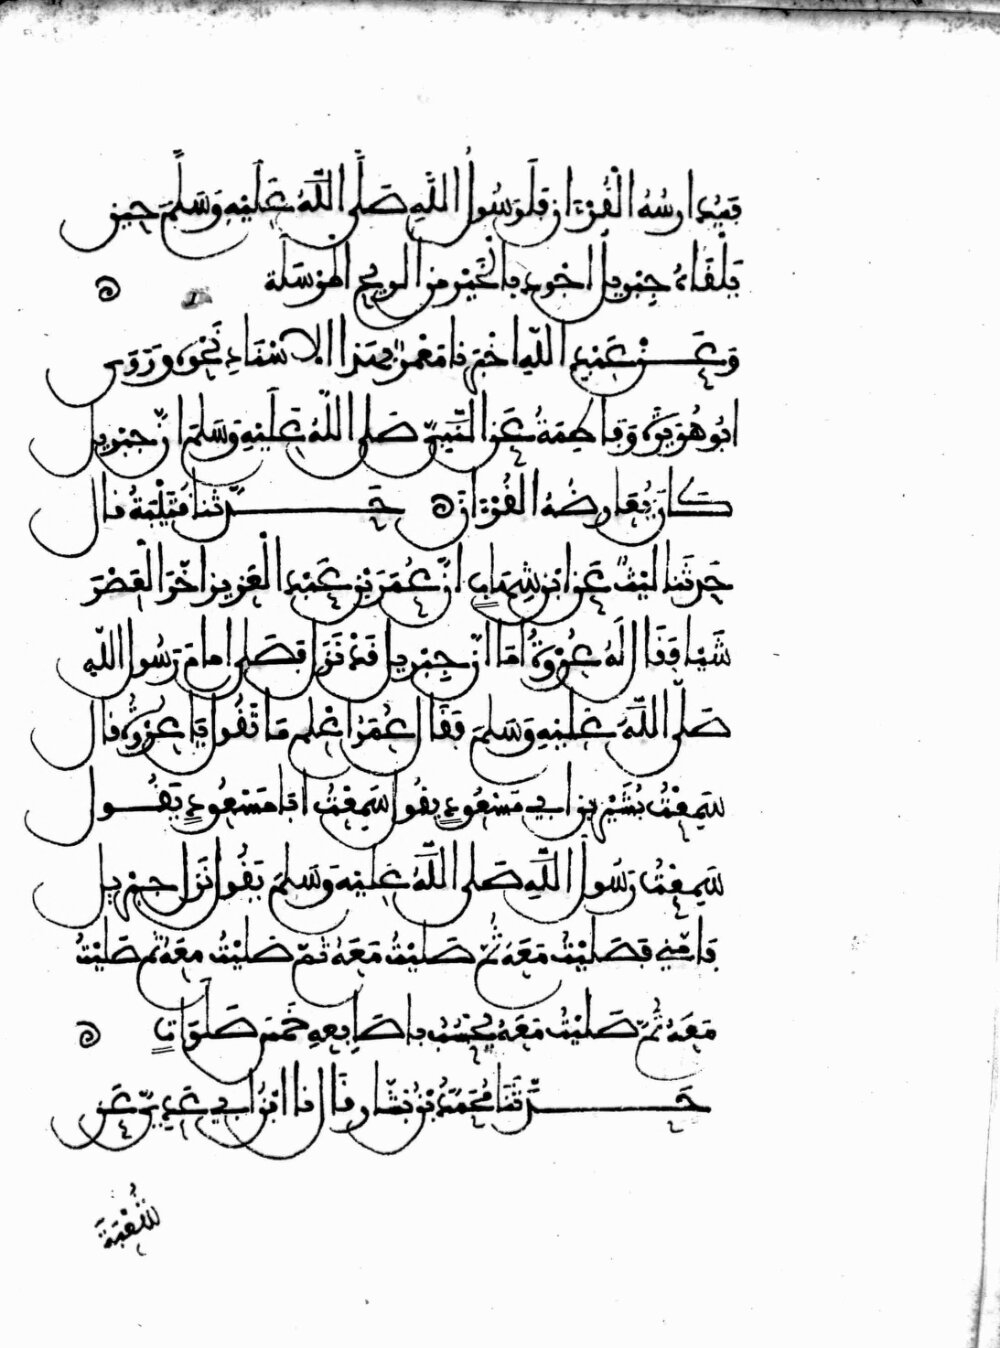 فيدارسه القرءان فلرسول الله صلى الله عليه وسلم حين
يلقاه جبريل اجود بالخير من الريح المرسلة
وعن عبد الله اخبرنا معمر بهذا الاسناد نحوه وروى
ابو هريرة وفاطمة عن النبي صلى الله عليه وسلم ان جبريل
كان يعارضه القرءان حدثنا قتيبة قال
حدثنا ليث عن ابن شهاب ان عمر بن عبد العزيز اخر العصر
شيا فقال له عروة اما ان جبريل قد نزل فصلى امام رسول الله
صلى الله عليه وسلم فقال عمر اعلم ما تقول يا عروة قال
سمعت بشير بن ابي مسعود يقول سمعت ابا مسعود يقول
سمعت رسول الله صلى الله عليه وسلم يقول نزل جبريل
فامني فصليت معه ثم صليت معه ثم صليت معه ثم صليت
معه ثم صليت معه يحسب باصابعه خمس صلوات
حدثنا محمد بن بشار قال نا ابن ابي عدي عن
شعبة